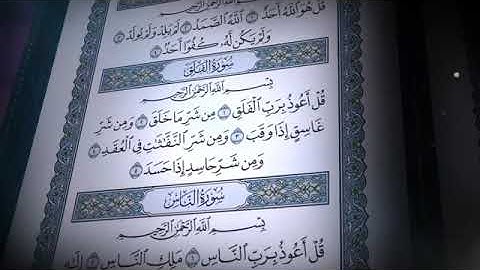 قُلْ هُوَ ٱللَّهُ أَحَدٌ ١ ٱللَّهُ ٱلصَّمَدُ ٢ لَمْ يَلِدْ وَلَمْ يُولَدْ ٣
وَلَمْ يَكُن لَّهُۥ كُفُوًا أَحَدٌۢ ٤
سُورَةُ الفَلَقِ
بِسْمِ ٱللَّهِ ٱلرَّحْمَٰنِ ٱلرَّحِيمِ
قُلْ أَعُوذُ بِرَبِّ ٱلْفَلَقِ ١ مِن شَرِّ مَا خَلَقَ ٢ وَمِن شَرِّ
غَاسِقٍ إِذَا وَقَبَ ٣ وَمِن شَرِّ ٱلنَّفَّٰثَٰتِ فِى ٱلْعُقَدِ ٤
وَمِن شَرِّ حَاسِدٍ إِذَا حَسَدَ ٥
سُورَةُ النَّاسِ
بِسْمِ ٱللَّهِ ٱلرَّحْمَٰنِ ٱلرَّحِيمِ
قُلْ أَعُوذُ بِرَبِّ ٱلنَّاسِ ١ مَلِكِ ٱلنَّاسِ ٢ إِلَٰهِ